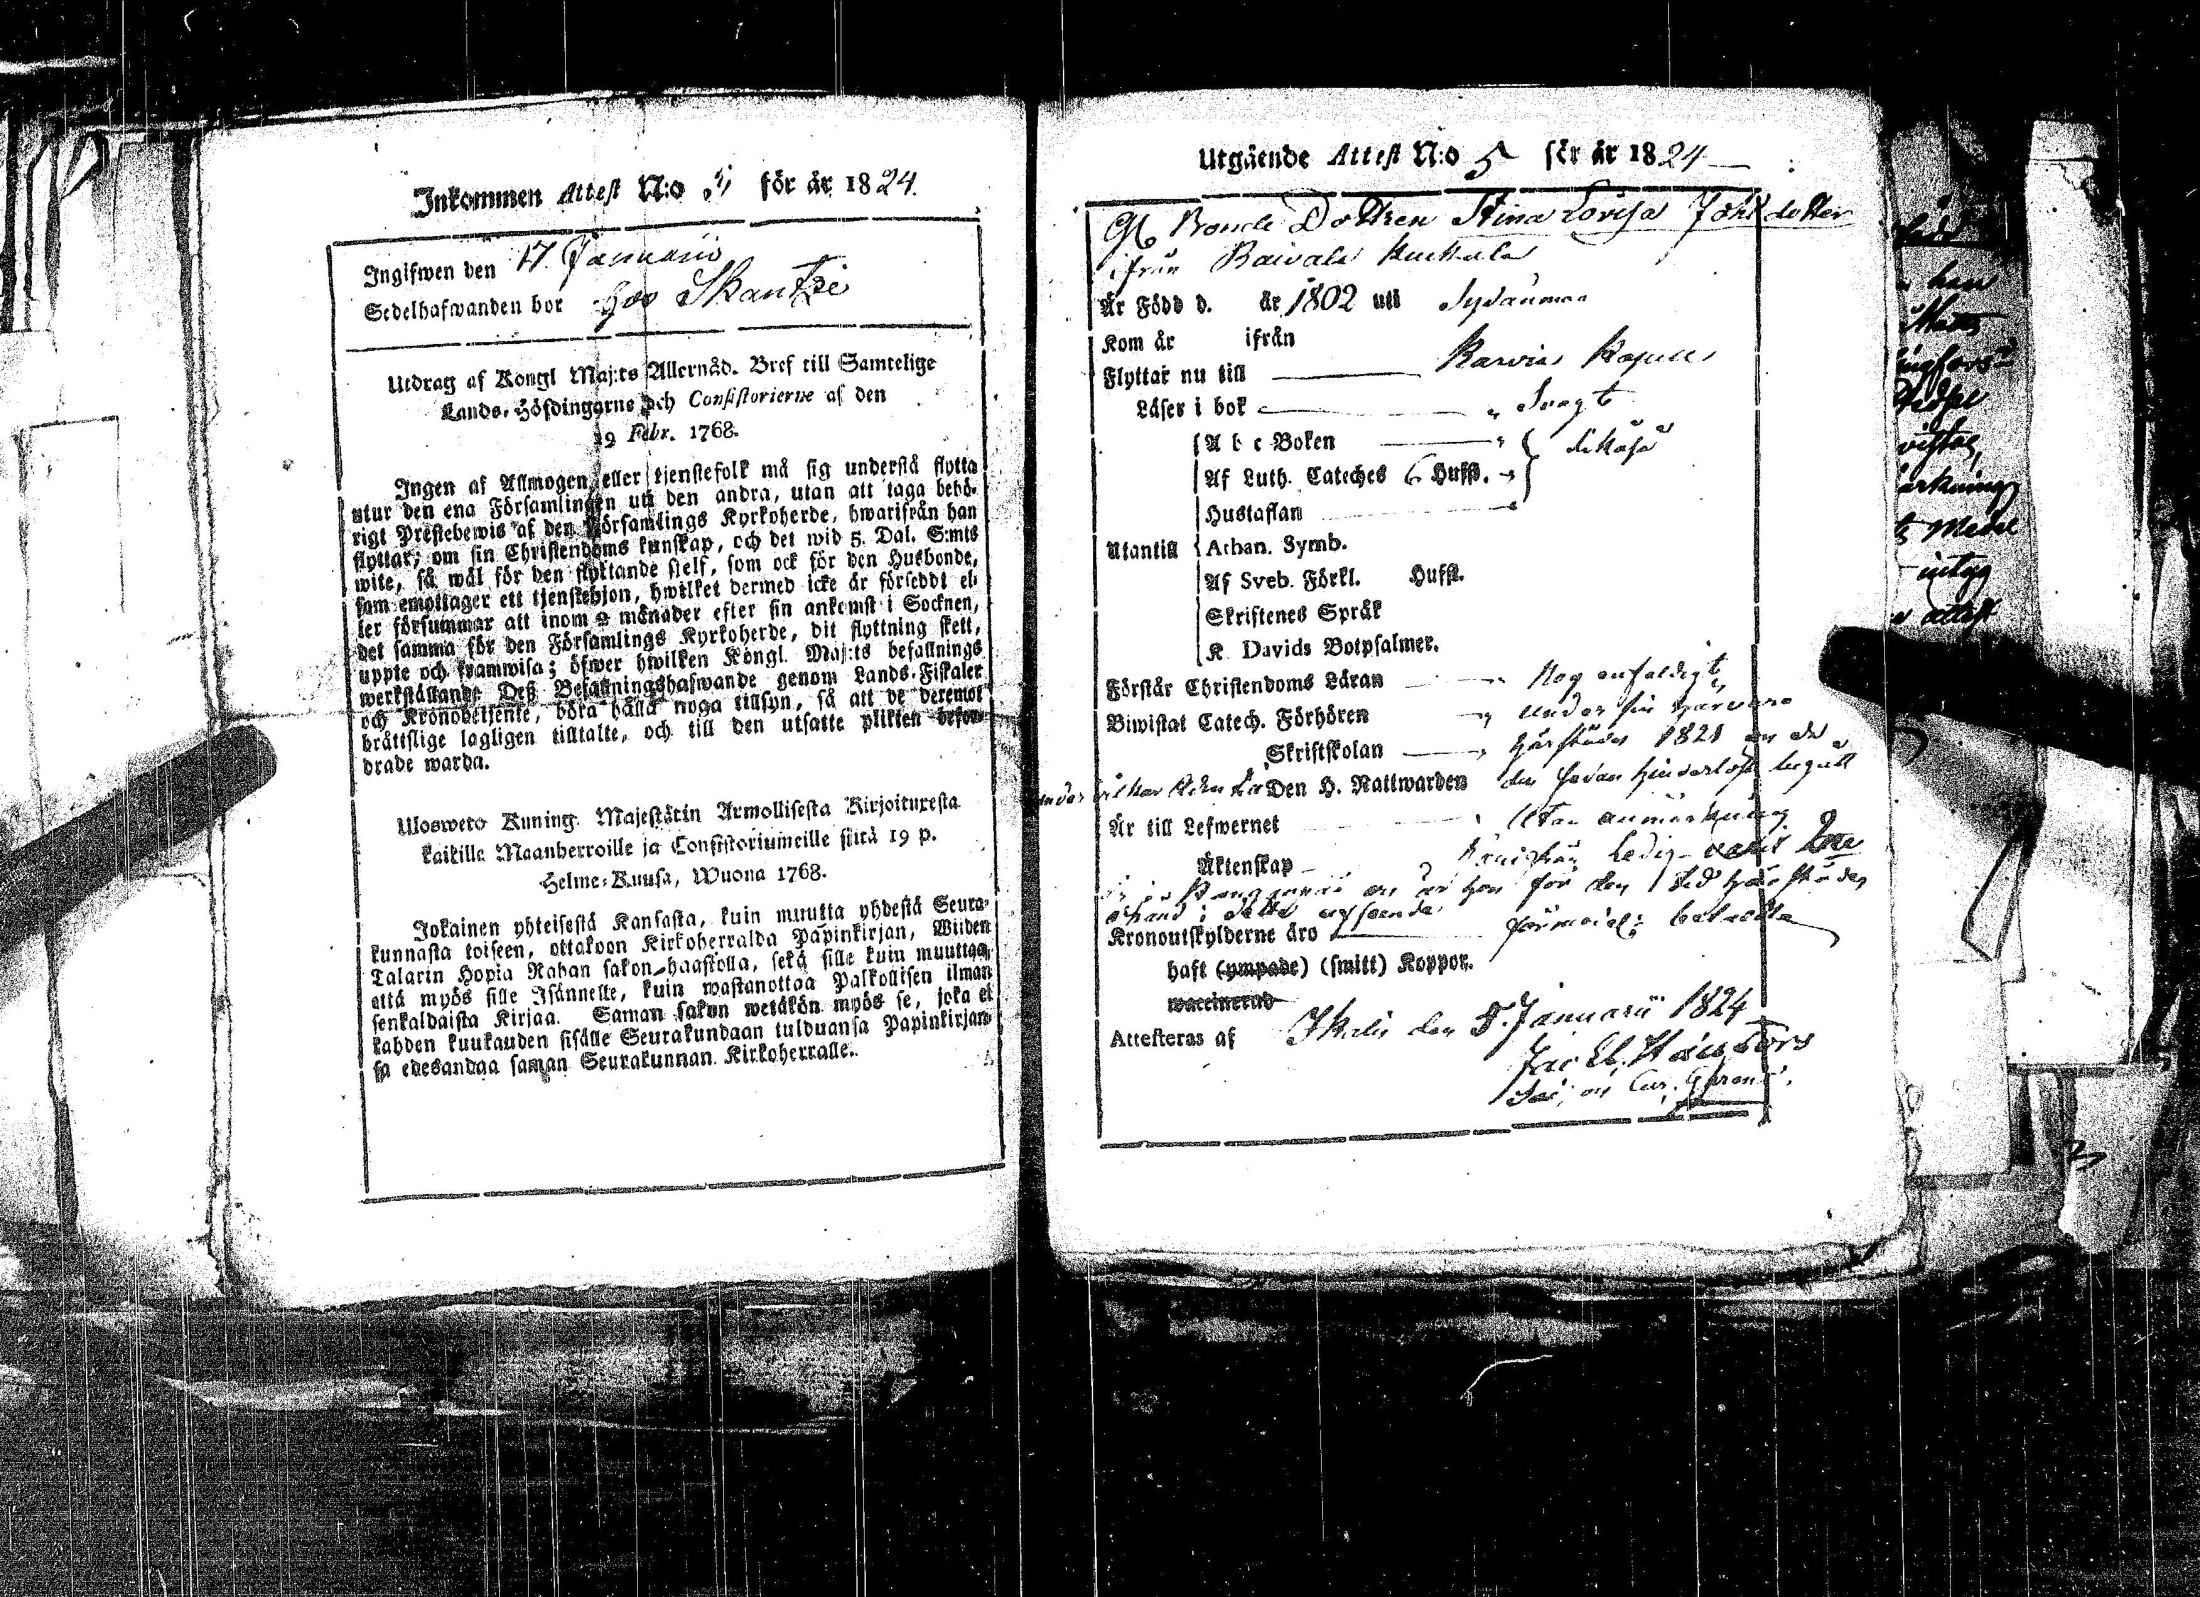 Inkommen Attest N:o 5 för år 1824.
Ingifwen den 17. Januarii
Sedelhafwanden bor hos Skantzi
Utdrag af Kongl Maj:ts Allernåd. Bref till Samtelige
Lands-Höfdingarne och Consistorierne af den
19 Febr. 1768.
Ingen af Allmogen eller tjenstefolk må sig understå flytta
utur den ena Församlingen uti den andra, utan att taga behö-
rigt Prestebewis af den Församlings Kyrkoherde, hwarifrån han
flyttar; om sin Christendoms kunskap, och det wid 5. Dal. S:mts
wite, så wäl för den flyttande sjelf, som ock för den Husbonde,
som emottager ett tjenstehjon, hwilket dermed icke är försedt el-
ler försummar att inom 2 månader efter sin ankomst i Socknen,
det samma för den Församlings Kyrkoherde, dit flyttning skett,
uppte och framwisa; öfwer hwilken Kongl. Maj:ts befallnings
werkställande Deß Befallningshafwande genom Lands-Fiskaler
och Kronobetjente, böra hålla noga tillsyn, så att de deremot
bråttslige lagligen tilltalte, och till den utsatte plikten befor-
drade warda.
Ulosweto Kuning. Majestätin Armollisesta Kirjoituxesta
kaikille Maanherroille ja Consistoriumeille siitä 19 p.
Helme-Kuusa, Wuona 1768.
Jokainen yhteisestä Kansasta, kuin muutta yhdestä Seura-
kunnasta toiseen, ottakoon Kirkoherralda Papinkirjan, Wiiden
Talarin Hopia Rahan sakon-haastolla, sekä sille kuin muuttaa,
että myös sille Isännelle, kuin wastanottaa Palkollisen ilman
senkaldaista Kirjaa. Saman sakon wetäkön myös se, joka ei
kahden kuukauden sisälle Seurakundaan tulduansa Papinkirjan-
sa edesandaa saman Seurakunnan Kirkoherralle.
Utgående Attest N:o 5 för år 1824
Bonde Dottren Stina Lovisa Joh:dotter
ifrån Raivala Kuckula
Är Född d. år 1802 uti Sydänmaa
Kom år ifrån
Flyttar nu till Karvia Kapell
Läser i bok Svagt
A b c Boken
Af Luth. Cateches 6 Hufst.
Hustaflan
Utantill Athan. Symb.
Af Sveb. Förkl. Hufst.
Skriftenes Språk
K. Davids Botpsalmer.
Förstår Christendoms Läran Nog enfaldigt
Biwistat Catech. Förhören under sin
Skriftskolan härstädes 1821
Den H. Nattwarden den sedan hinderlöst begått
Är till Lefwernet utan anmärkning
Äktenskap ledig
för den tid härstädes
Kronoutskylderne äro betalda
haft (ympade) (smitt) Koppor.
waccinerad
Attesteras af Ikalis den 5. Januarii 1824